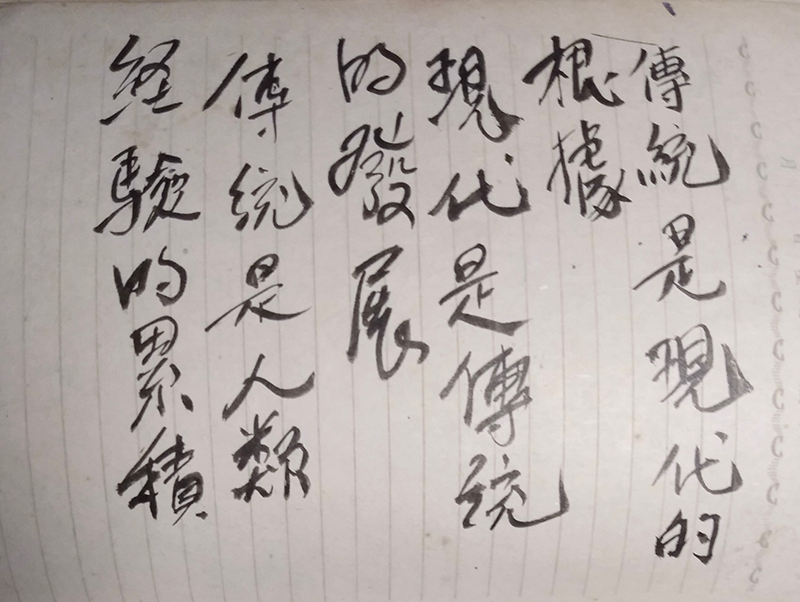 傳統是現代的
根據
現代是傳統
的發展
傳統是人類
経驗的累積